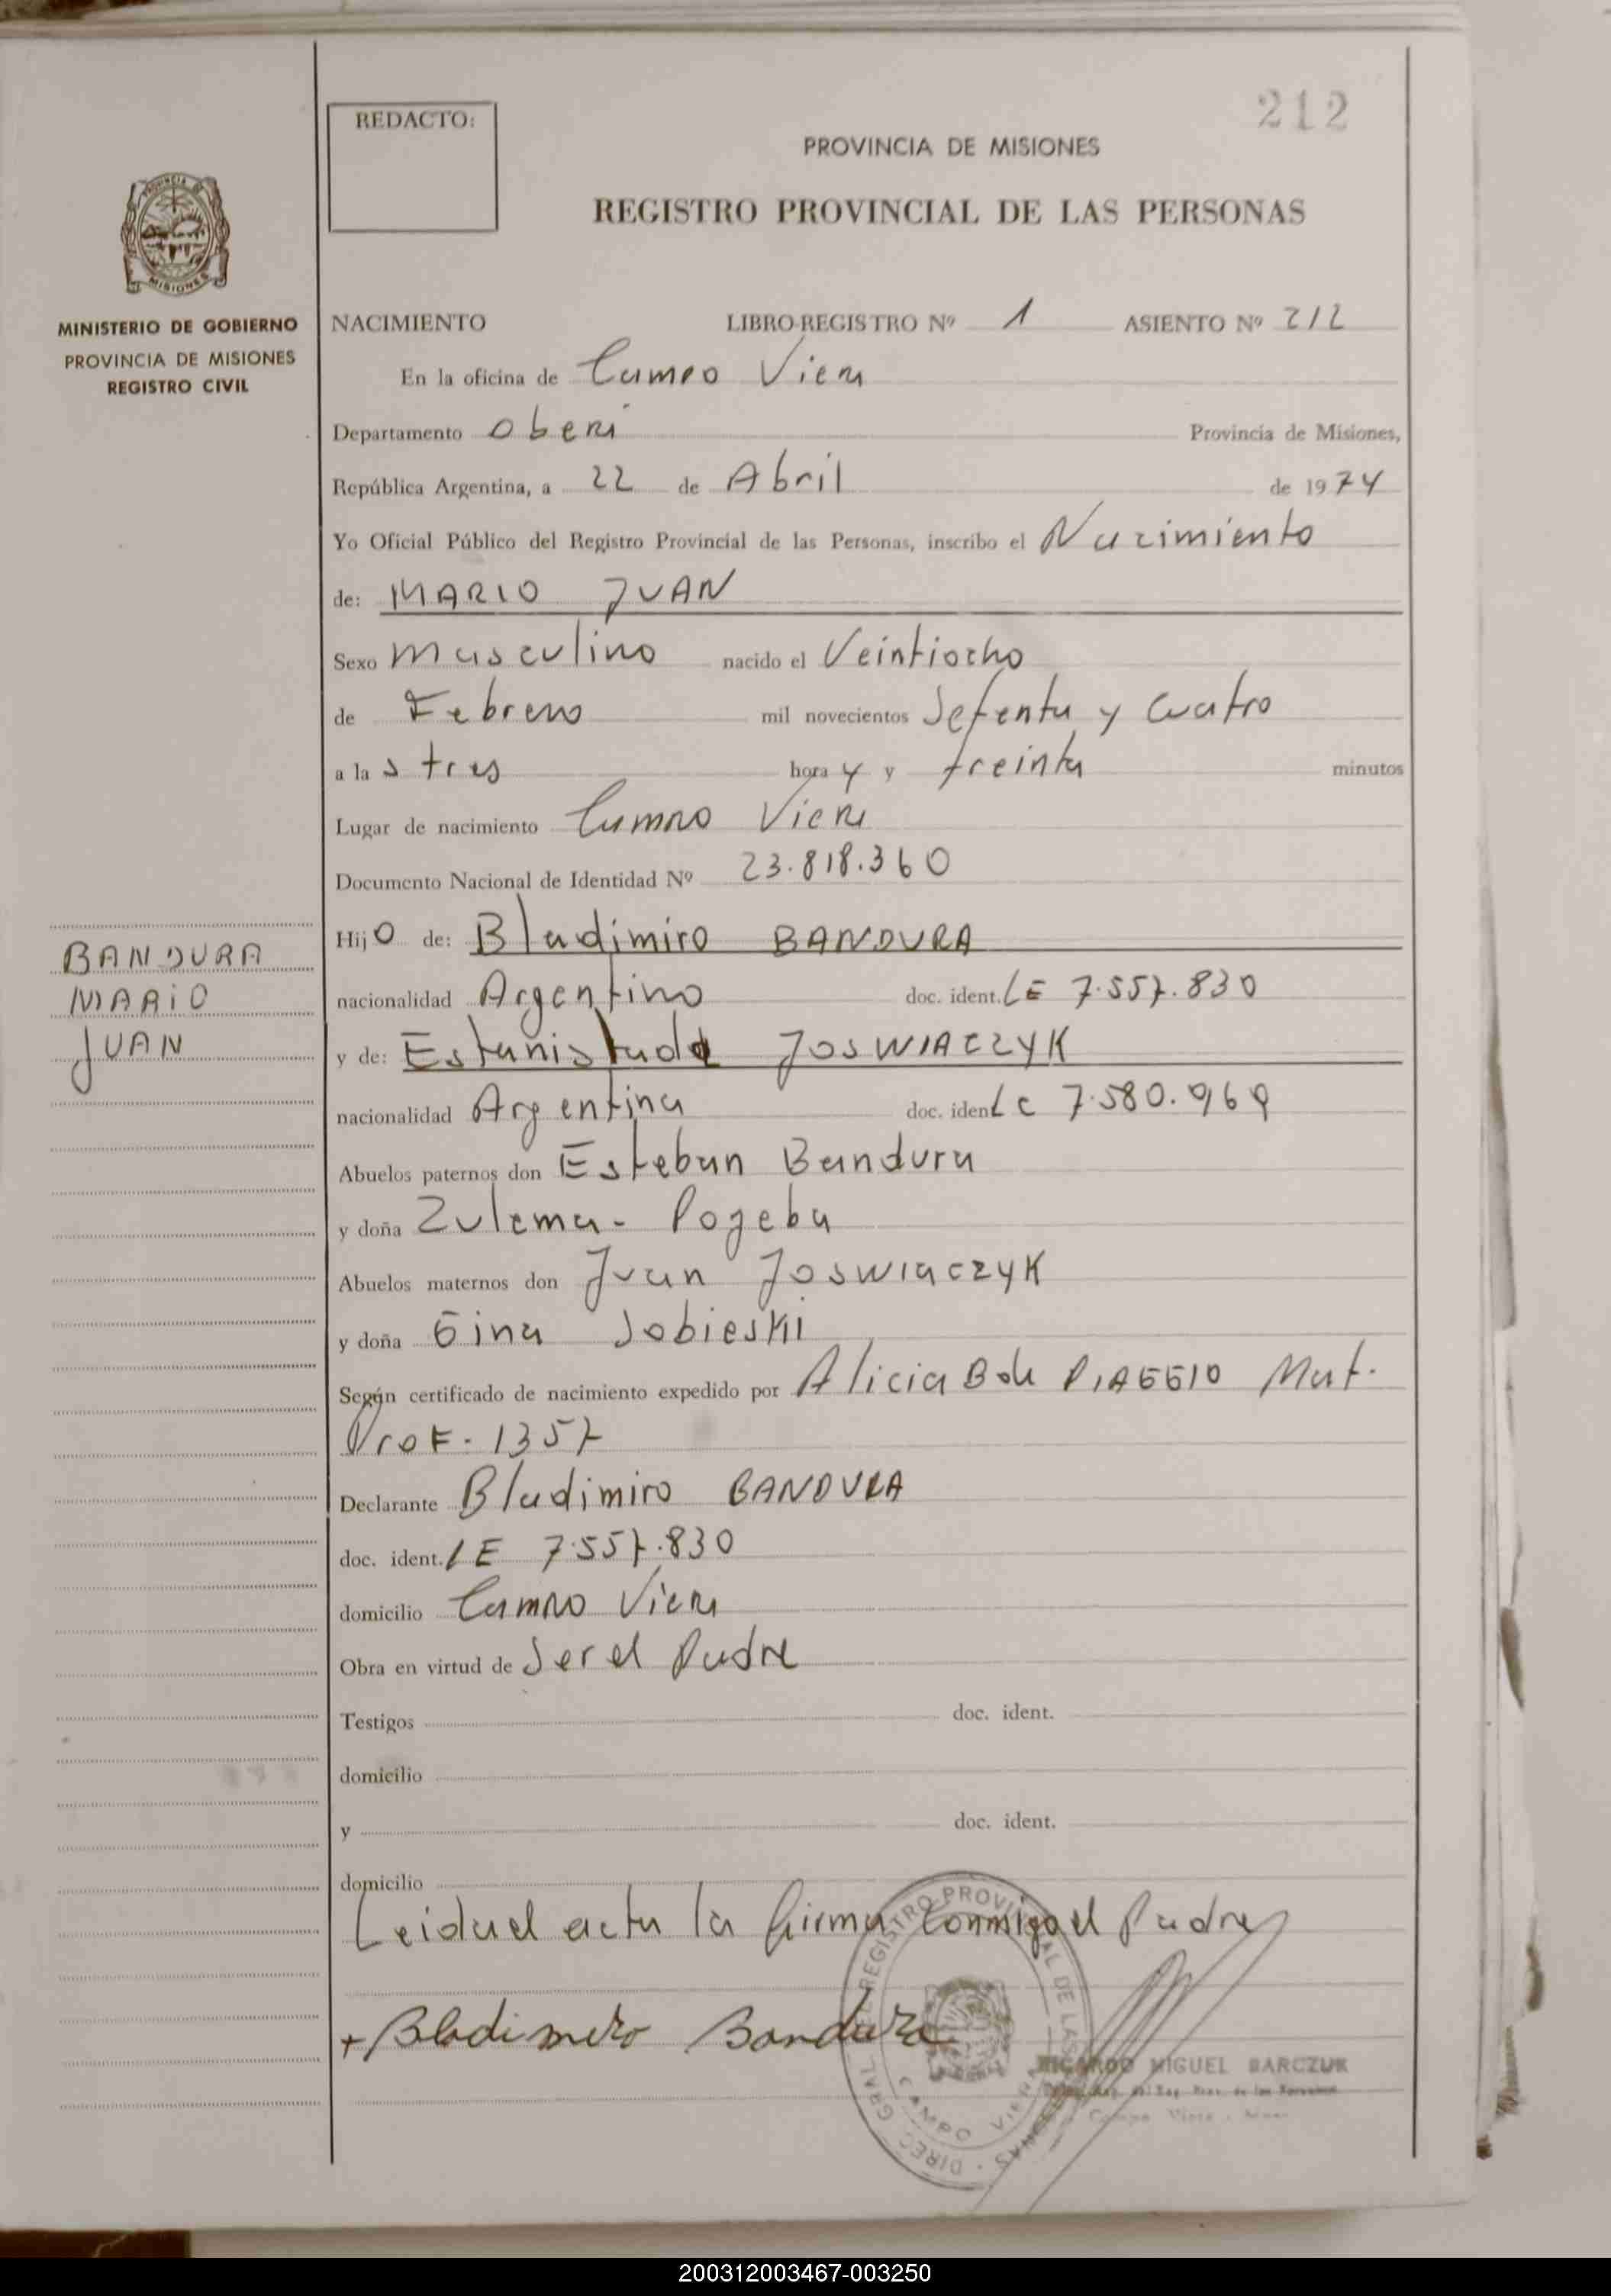 212
REDACTO:
PROVINCIA DE MISIONES
REGISTRO PROVINCIAL DE LAS PERSONAS
MINISTERIO DE GOBIERNO
PROVINCIA DE MISIONES
REGISTRO CIVIL
NACIMIENTO LIBRO-REGISTRO Nº 1 ASIENTO Nº 212
En la oficina de Campo Viera
Departamento Oberá Provincia de Misiones,
República Argentina, a 22 de Abril de 1974
Yo Oficial Público del Registro Provincial de las Personas, inscribo el Nacimiento
de: MARIO JUAN
Sexo Masculino nacido el Veintiocho
de Febrero mil novecientos Setenta y Cuatro
a las tres hora y y treinta minutos
Lugar de nacimiento Campo Viera
Documento Nacional de Identidad Nº 23.818.360
BANDURA
MARIO
JUAN
Hijo de: Bladimiro BANDURA
nacionalidad Argentino doc. ident. LE 7.557.830
y de: JOSWIACZYK
nacionalidad Argentina doc. ident LC 7.580.969
Abuelos paternos don Esteban Bandura
y doña Zulema - Pogeba
Abuelos maternos don Juan JOSWIACZYK
y doña Gina Sobieski
Según certificado de nacimiento expedido por Alicia B de PIAGGIO Mat.
Prof. 1357
Declarante Bladimiro BANDURA
doc. ident. LE 7.557.830
domicilio Campo Viera
Obra en virtud de Ser el Padre
Testigos doc. ident.
domicilio
y doc. ident.
domicilio
Leida el acta la firma conmigo el Padre
+ Bladimiro Bandura
DIREC. GRAL. DEL REGISTRO PROVINCIAL DE LAS PERSONAS
CAMPO VIERA
RICARDO MIGUEL BARCZUK
Campo Viera
200312003467-003250